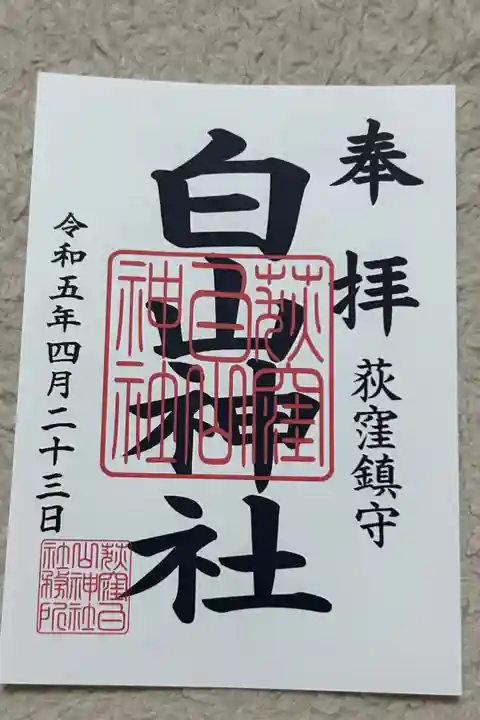 奉拝
荻窪鎮守
白山神社
荻窪
白山
神社
令和五年四月二十三日
荻窪白
山神社
社務所